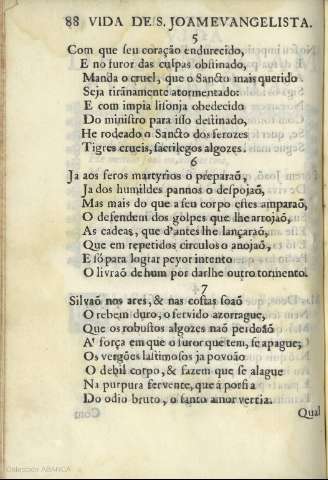 88 VIDA DE S. JOAM EVANGELISTA.
5
Com que seu coração endurecido,
E no furor das culpas obstinado,
Manda o cruel, que o Sancto mais querido
Seja tirânamente atormentado:
E com impia lisonja obedecido
Do ministro para isso destinado,
He rodeado o Sancto dos ferozes
Tigres crueis, sacrilegos algozes.
6
Ja aos feros martyrios o prèparaõ,
Ja dos humildes pannos o despojaõ,
Mas mais do que a seu corpo estes amparaõ,
O defendem dos golpes que lhe arrojaõ,
As cadeas, que d'antes lhe lançaraõ,
Que em repetidos circulos o anojaõ,
E só para lograr peyor intento
O livraõ de hum por darlhe outro tormento.
7
Silvaõ nos ares, & nas costas soaõ
O rebem duro, o fervido azorrague,
Que os robustos algozes naõ perdoaõ
A' força em que o furor que tem, se apague;
Os vergões lastimosos ja povoão
O debil corpo, & fazem que se alague
Na purpura fervente, que á porfia
Do odio bruto, o santo amor vertia.
Qual
Colección ABANCA